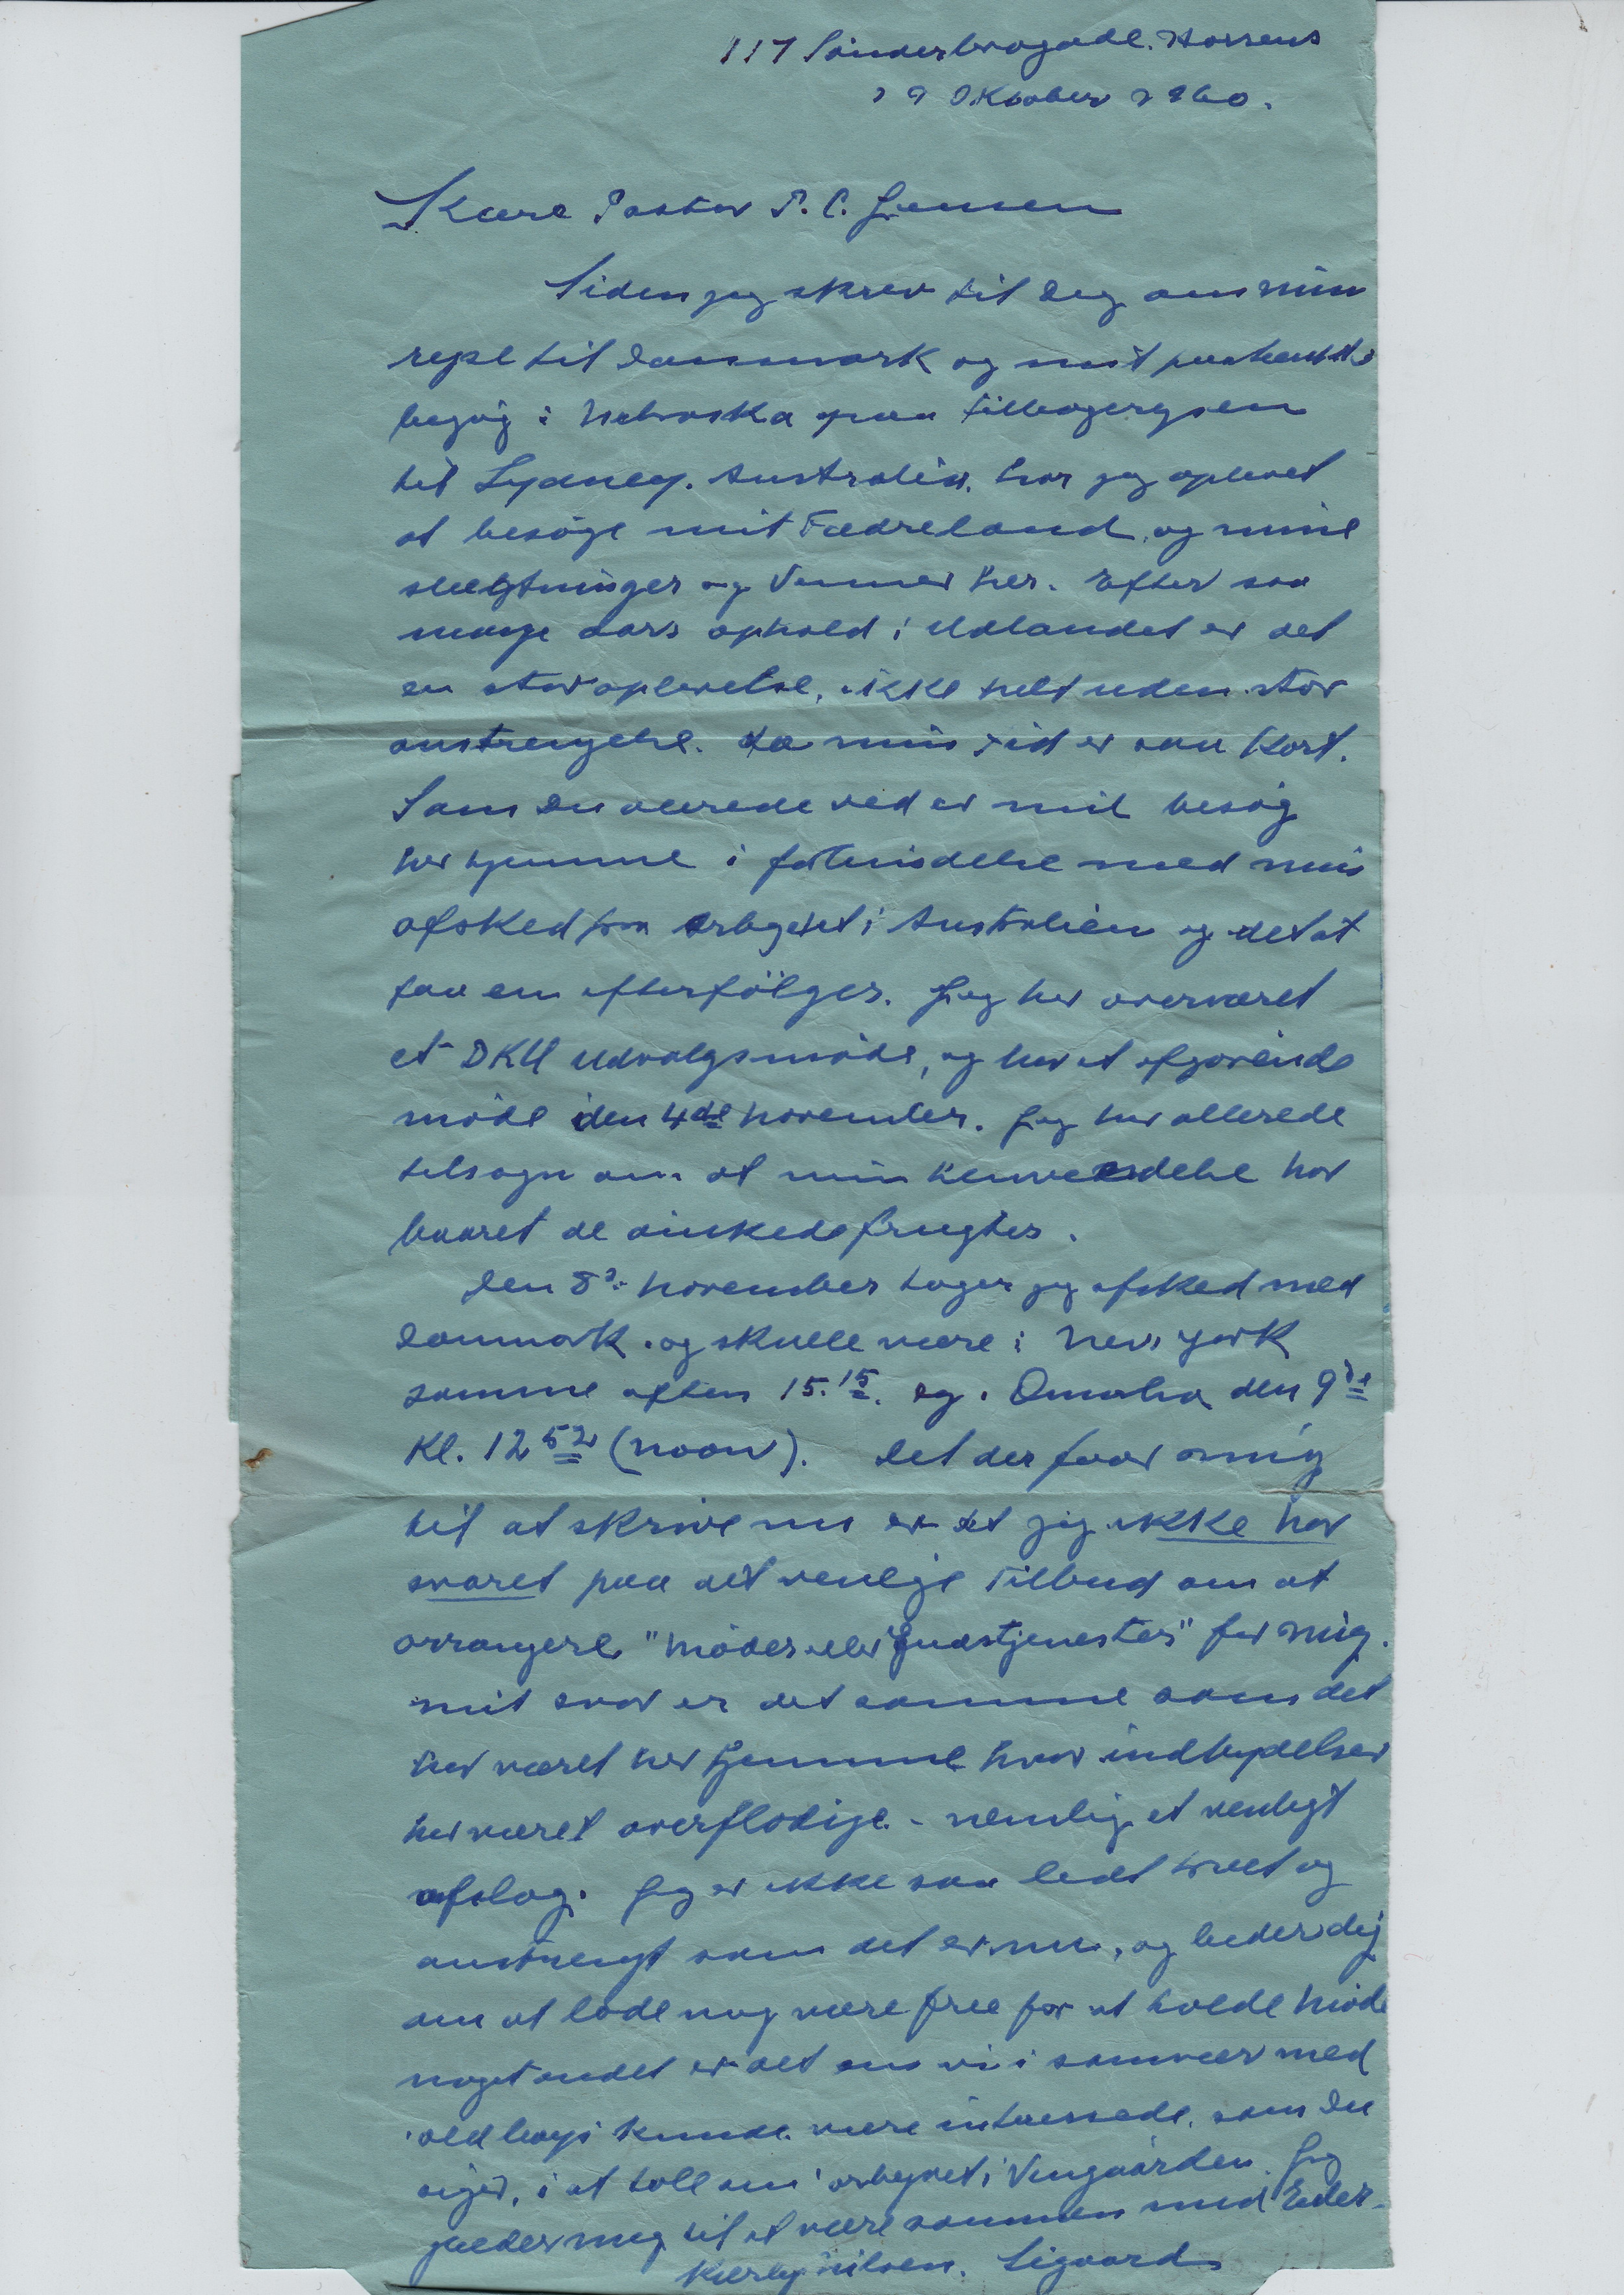 117 Sönderbrogade. Horsens
29 Oktober 1960.
Kære Pastor P. C. Jensen
Siden jeg skrev til Dig om min
rejse til Danmark og mit paatænkte
besøg i Nebraska paa tilbagerejsen
til Sydney. Australien. har jeg oplevet
at besöge mit Fædreland, og mine
slægtninger og Venner her. Efter saa
mange Aars ophold i Udlandet er det
en stor oplevelse, ikke helt uden stor
anstrengelse. da min Tid er saa kort.
Som Du allerede ved er mit besög
her hjemme i forbindelse med min
afsked fra arbejdet i Australien og det at
faa en efterfölger. Jeg har overværet
et DKU Udvalgsmöde, og har et afgörende
möde den 4de November. Jeg har allerede
tilsagn om at min henvendelse har
baaret de önskede frugter.
Den 8de November tager jeg afsked med
Danmark. og skulle være i New York
samme aften 15.15. og i Omaha den 9de
Kl. 12 52 (noon). Det der faar mig
til at skrive nu er at jeg ikke har
svaret paa dit venlige Tilbud om at
arrangere "Möder eller Gudstjenester" for mig.
mit svar er det samme som det
har været her hjemme hvor indbydelser
har været overflödige. - nemlig et venligt
afslag. Jeg er ikke saa lidt træt og
anstrengt som det er nu, og beder dig
om at lade mig være free for at holde Möde
noget andet er det om vi i samvær med
'old boys' kunde være interesserede. som Du
siger, i at tale om arbejdet i Vingaarden. Jeg
glæder mig til at være sammen med Eder.
Kærlig hilsen. Sigaard